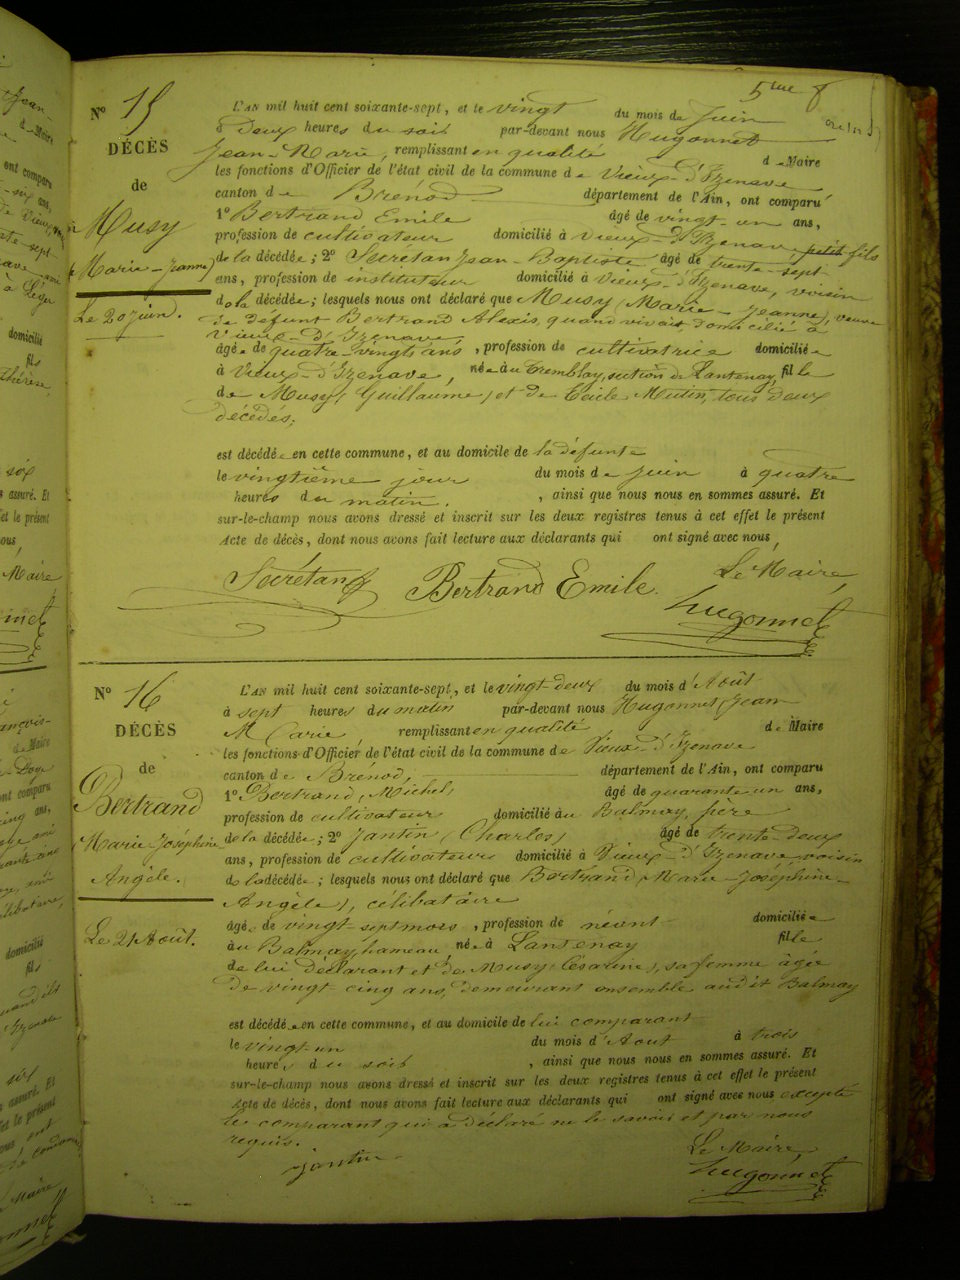 5me 8
N° 15
DÉCÈS
de
Musy
Marie-Jeanne
Le 20 juin.
L'AN mil huit cent soixante-sept, et le vingt du mois de Juin
à deux heures du soir par-devant nous Hugonnet
Jean-Marie, remplissant en qualité de Maire
les fonctions d'Officier de l'état civil de la commune de Vieux-d'Izenave
canton de Brénod département de l'Ain, ont comparu
1° Bertrand Emile âgé de vingt-un ans,
profession de cultivateur domicilié à Vieux-d'Izenave, petit fils
de la décédée; 2° Secrétan Jean-Baptiste âgé de trente-sept
ans, profession de instituteur domicilié à Vieux-d'Izenave, voisin
de la décédée; lesquels nous ont déclaré que Musy (Marie-Jeanne), veuve
de défunt Bertrand Alexis, quand vivait domicilié à
Vieux-d'Izenave
âgée de quatre-vingts ans, profession de cultivatrice domiciliée
à Vieux-d'Izenave, née au Tremblay, section de Lantenay, fille
de Musy (Guillaume) et de Mutin, tous deux
décédés;
est décédée en cette commune, et au domicile de la défunte
le vingtième jour du mois de Juin à quatre
heures du matin, ainsi que nous nous en sommes assuré. Et
sur-le-champ nous avons dressé et inscrit sur les deux registres tenus à cet effet le présent
Acte de décès, dont nous avons fait lecture aux déclarants qui ont signé avec nous,
Secrétan Bertrand Emile. Le Maire,
Hugonnet
N° 16
DÉCÈS
de
Bertrand
Marie-Joséphine
Angèle.
Le 21 Août.
L'AN mil huit cent soixante-sept, et le vingt-deux du mois d'Août
à sept heures du matin par-devant nous Hugonnet (Jean
Marie, remplissant en qualité de Maire
les fonctions d'Officier de l'état civil de la commune de Vieux-d'Izenave
canton de Brénod, département de l'Ain, ont comparu
1° Bertrand (Michel) âgé de quarante un ans,
profession de cultivateur domicilié au Balmay, père
de la décédée; 2° Jantin (Charles) âgé de trente-deux
ans, profession de cultivateur domicilié à Vieux-d'Izenave, voisin
de la décédée; lesquels nous ont déclaré que Bertrand (Marie-Joséphine-
Angèle), célibataire
âgée de vingt-sept mois, profession de néant domiciliée
au Balmay, hameau, née à Lantenay fille
de lui déclarant et de Musy (Césarine), sa femme âgée
de vingt cinq ans, demeurant ensemble audit Balmay
est décédée en cette commune, et au domicile de lui comparant
le vingt-un du mois d'Aout à trois
heures du soir, ainsi que nous nous en sommes assuré. Et
sur-le-champ nous avons dressé et inscrit sur les deux registres tenus à cet effet le présent
Acte de décès, dont nous avons fait lecture aux déclarants qui ont signé avec nous excepté
le comparant qui a déclaré ne le savoir et par nous
requis.
Jantin Le Maire,
Hugonnet